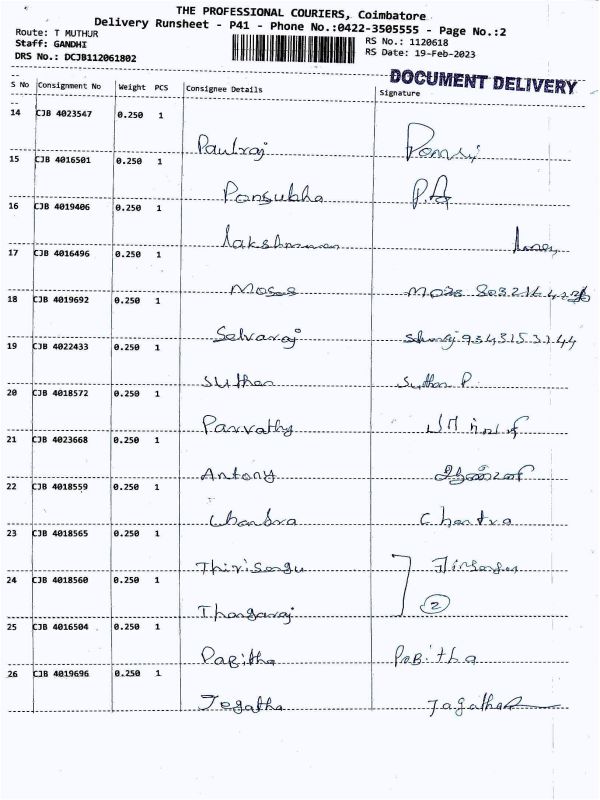 THE PROFESSIONAL COURIERS, Coimbatore
Delivery Runsheet - P41 - Phone No.:0422-3505555 - Page No.:2
Route: T MUTHUR
RS No.: 1120618
Staff: GANDHI
RS Date: 19-Feb-2023
DRS No.: DCJB112061802
DOCUMENT DELIVERY
S No Consignment No Weight PCS Consignee Details Signature
14 CJB 4023547 0.250 1
Paulraj
15 CJB 4016501 0.250 1
Ponsubha P.A
16 CJB 4019406 0.250 1
Lakshmanan
17 CJB 4016496 0.250 1
Moses
18 CJB 4019692 0.250 1
Selvaraj
19 CJB 4022433 0.250 1
Suthan Suthan P.
20 CJB 4018572 0.250 1
Parvathy
21 CJB 4023668 0.250 1
Antony
22 CJB 4018559 0.250 1
Chandra Chantra
23 CJB 4018565 0.250 1
Thirisangu
24 CJB 4018560 0.250 1
Thangaraj 2
25 CJB 4016504 0.250 1
Pabitha Pabitha
26 CJB 4019696 0.250 1
Jegatha Jagatha